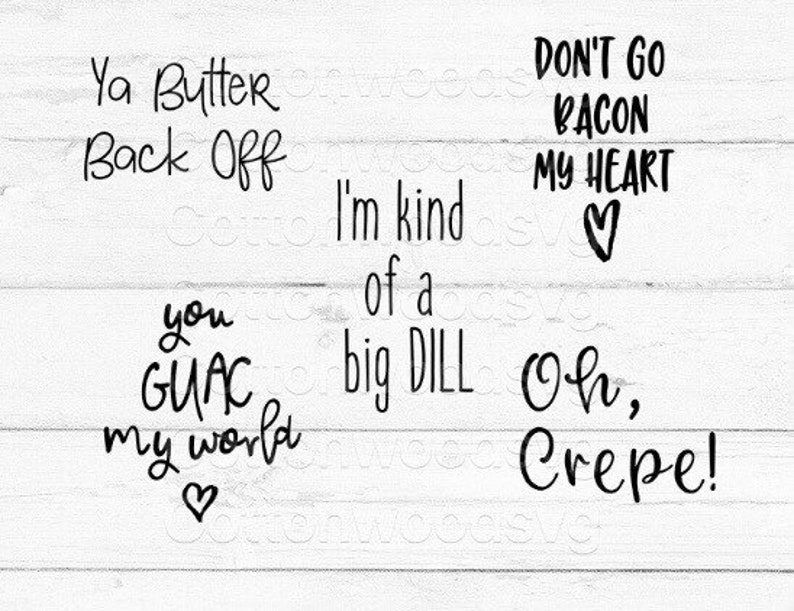 Ya Butter
Back Off
DON'T GO
BACON
MY HEART
I'm kind
of a
big DILL
you
GUAC
my world
Oh,
Crepe!
Cottonwoodsvg
Cottonwoodsvg
Cottonwoodsvg
Cottonwoodsvg
Cottonwoodsvg
Cottonwoodsvg
Cottonwoodsvg